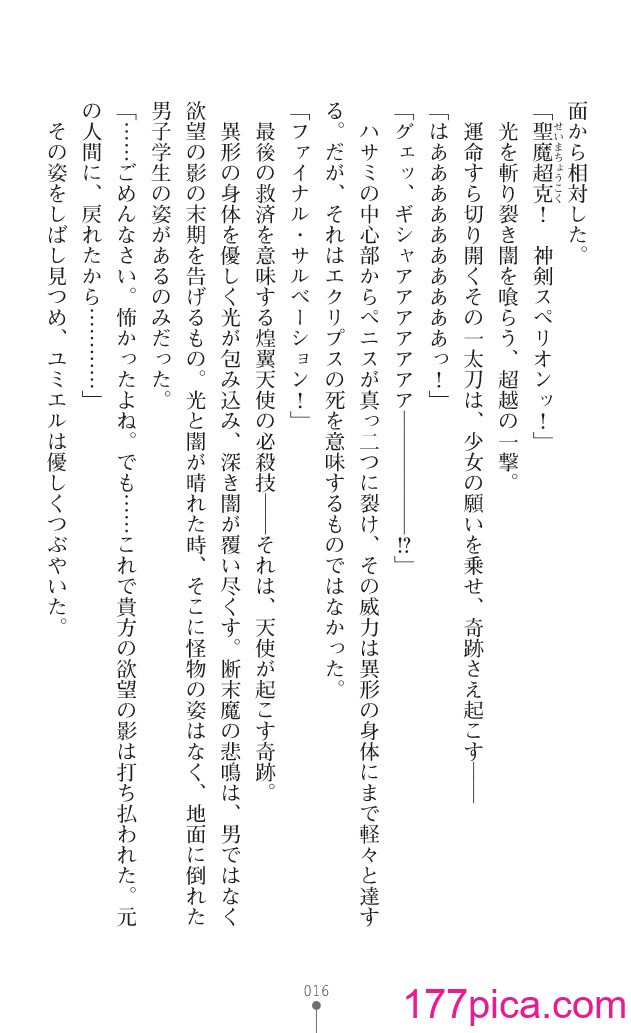 面から相対した。
「聖魔超克！　神剣スペリオンッ！」
せいまちょうこく
光を斬り裂き闇を喰らう、超越の一撃。
運命すら切り開くその一太刀は、少女の願いを乗せ、奇跡さえ起こす――
「はああああああああああっ！」
「グェッ、ギシャアアアアアアア――――――!?」
ハサミの中心部からペニスが真っ二つに裂け、その威力は異形の身体にまで軽々と達す
る。だが、それはエクリプスの死を意味するものではなかった。
「ファイナル・サルベーション！」
最後の救済を意味する煌翼天使の必殺技――それは、天使が起こす奇跡。
異形の身体を優しく光が包み込み、深き闇が覆い尽くす。断末魔の悲鳴は、男ではなく
欲望の影の末期を告げるもの。光と闇が晴れた時、そこに怪物の姿はなく、地面に倒れた
男子学生の姿があるのみだった。
「……ごめんなさい。怖かったよね。でも……これで貴方の欲望の影は打ち払われた。元
の人間に、戻れたから…………」
その姿をしばし見つめ、ユミエルは優しくつぶやいた。
016
177pica.com